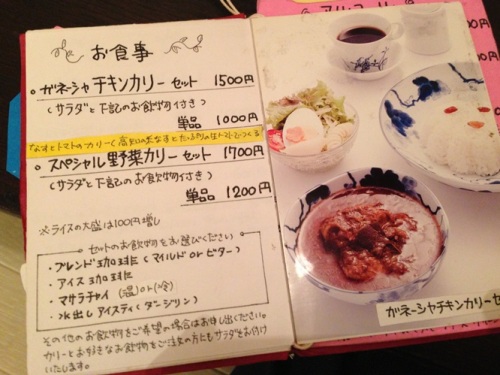 アルコール
お食事
ガネーシャチキンカリーセット 1500円
(サラダと下記のお飲物付き)
単品 1000円
なすとトマトのカリー(高知の米なすとたっぷりの生トマトでつくる)
スペシャル野菜カリーセット 1700円
(サラダと下記のお飲物付き)
単品 1200円
※ライスの大盛は100円増し
セットのお飲物をお選びください
・ブレンド珈琲(マイルド or ビター)
・アイス珈琲
・マサラチャイ (温)or(冷)
・水出しアイスティ(ダージリン)
その他のお飲物をご希望の場合はお申し出ください。
カリーとお好きなお飲物をご注文の方にもサラダをお付け
いたします。
ガネーシャチキンカリーセ